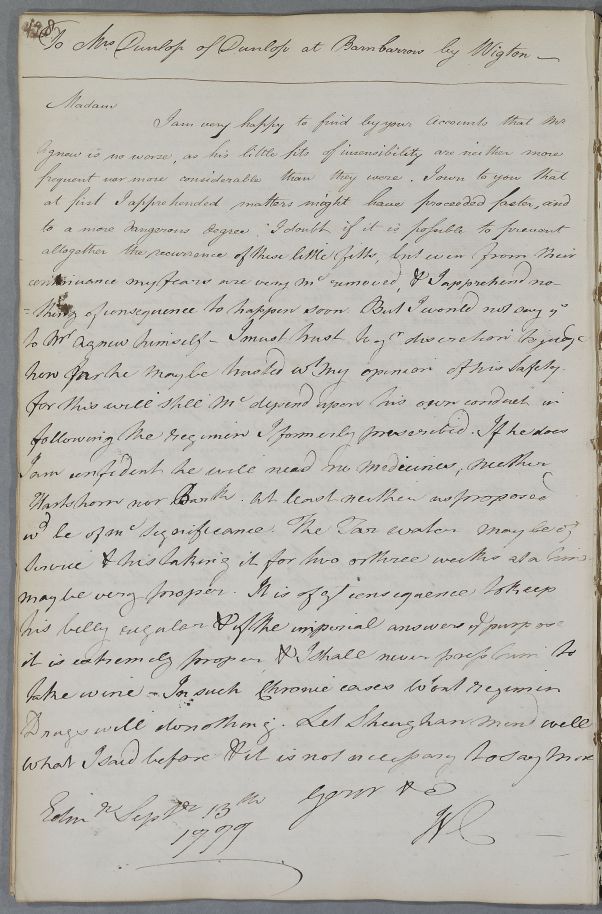 428
To Mrs Dunlop of Dunlop at Barnbarrow by Wigton
Madam
I am very happy to find by your Accounts that Mr
Agnew is no worse, as his little fits of insensibility are neither more
frequent nor more considerable than they were. I own to you that
at first I apprehended matters might have proceeded faster, and
to a more dangerous Degree; I doubt if it is possible to prevent
altogether the recurrence of these little fitts, but even from their
continuance my fears are very mch removed, & I apprehend no-
=thing of consequence to happen soon. But I would not say ys
to Mr Agnew himself - I must trust to yr discretion to judge
how far he may be trusted wt my opinion of his Safety.
for this will still mch depend upon his own conduct in
following the regimen I formerly prescribed. If he does
I am confident he will need no medicines, neither
Hartshorn nor Bark. at least neither as proposed
wd be of mch significance. The Tar water may be of
Service & his taking it for two or three weeks at a time
may be very proper. It is of gt consequence to keep
his belly regular & if the imperial answers ys purpose
it is extremely proper & I shall never press him to
take wine - In such Chronic cases wtout regimen
Drugs will do nothing. Let Sheughan mind well
what I said before & it is not necessary to say more
Edinr Septr 13th
1799
I am &c
WC